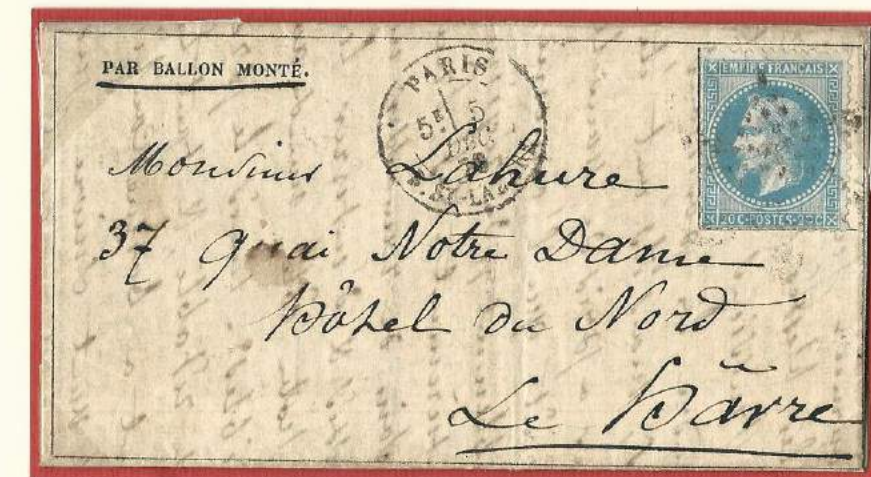 PAR BALLON MONTÉ.
PARIS
5E 5
DEC
ST-LAZ
EMPIRE FRANÇAIS
20 C-POSTES-20 C
Monsieur Lahure
37 quai Notre Dame
Hôtel du Nord
Le Hâvre